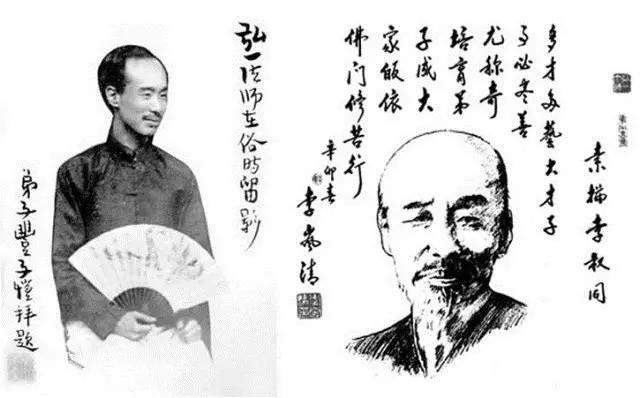 弘一法师在俗時留影
弟子豐子愷拜題
素描李叔同
多才多藝大才子
事必尽善
尤称奇
培育弟
子成大
家皈依
佛门修苦行
辛卯春
李岚清